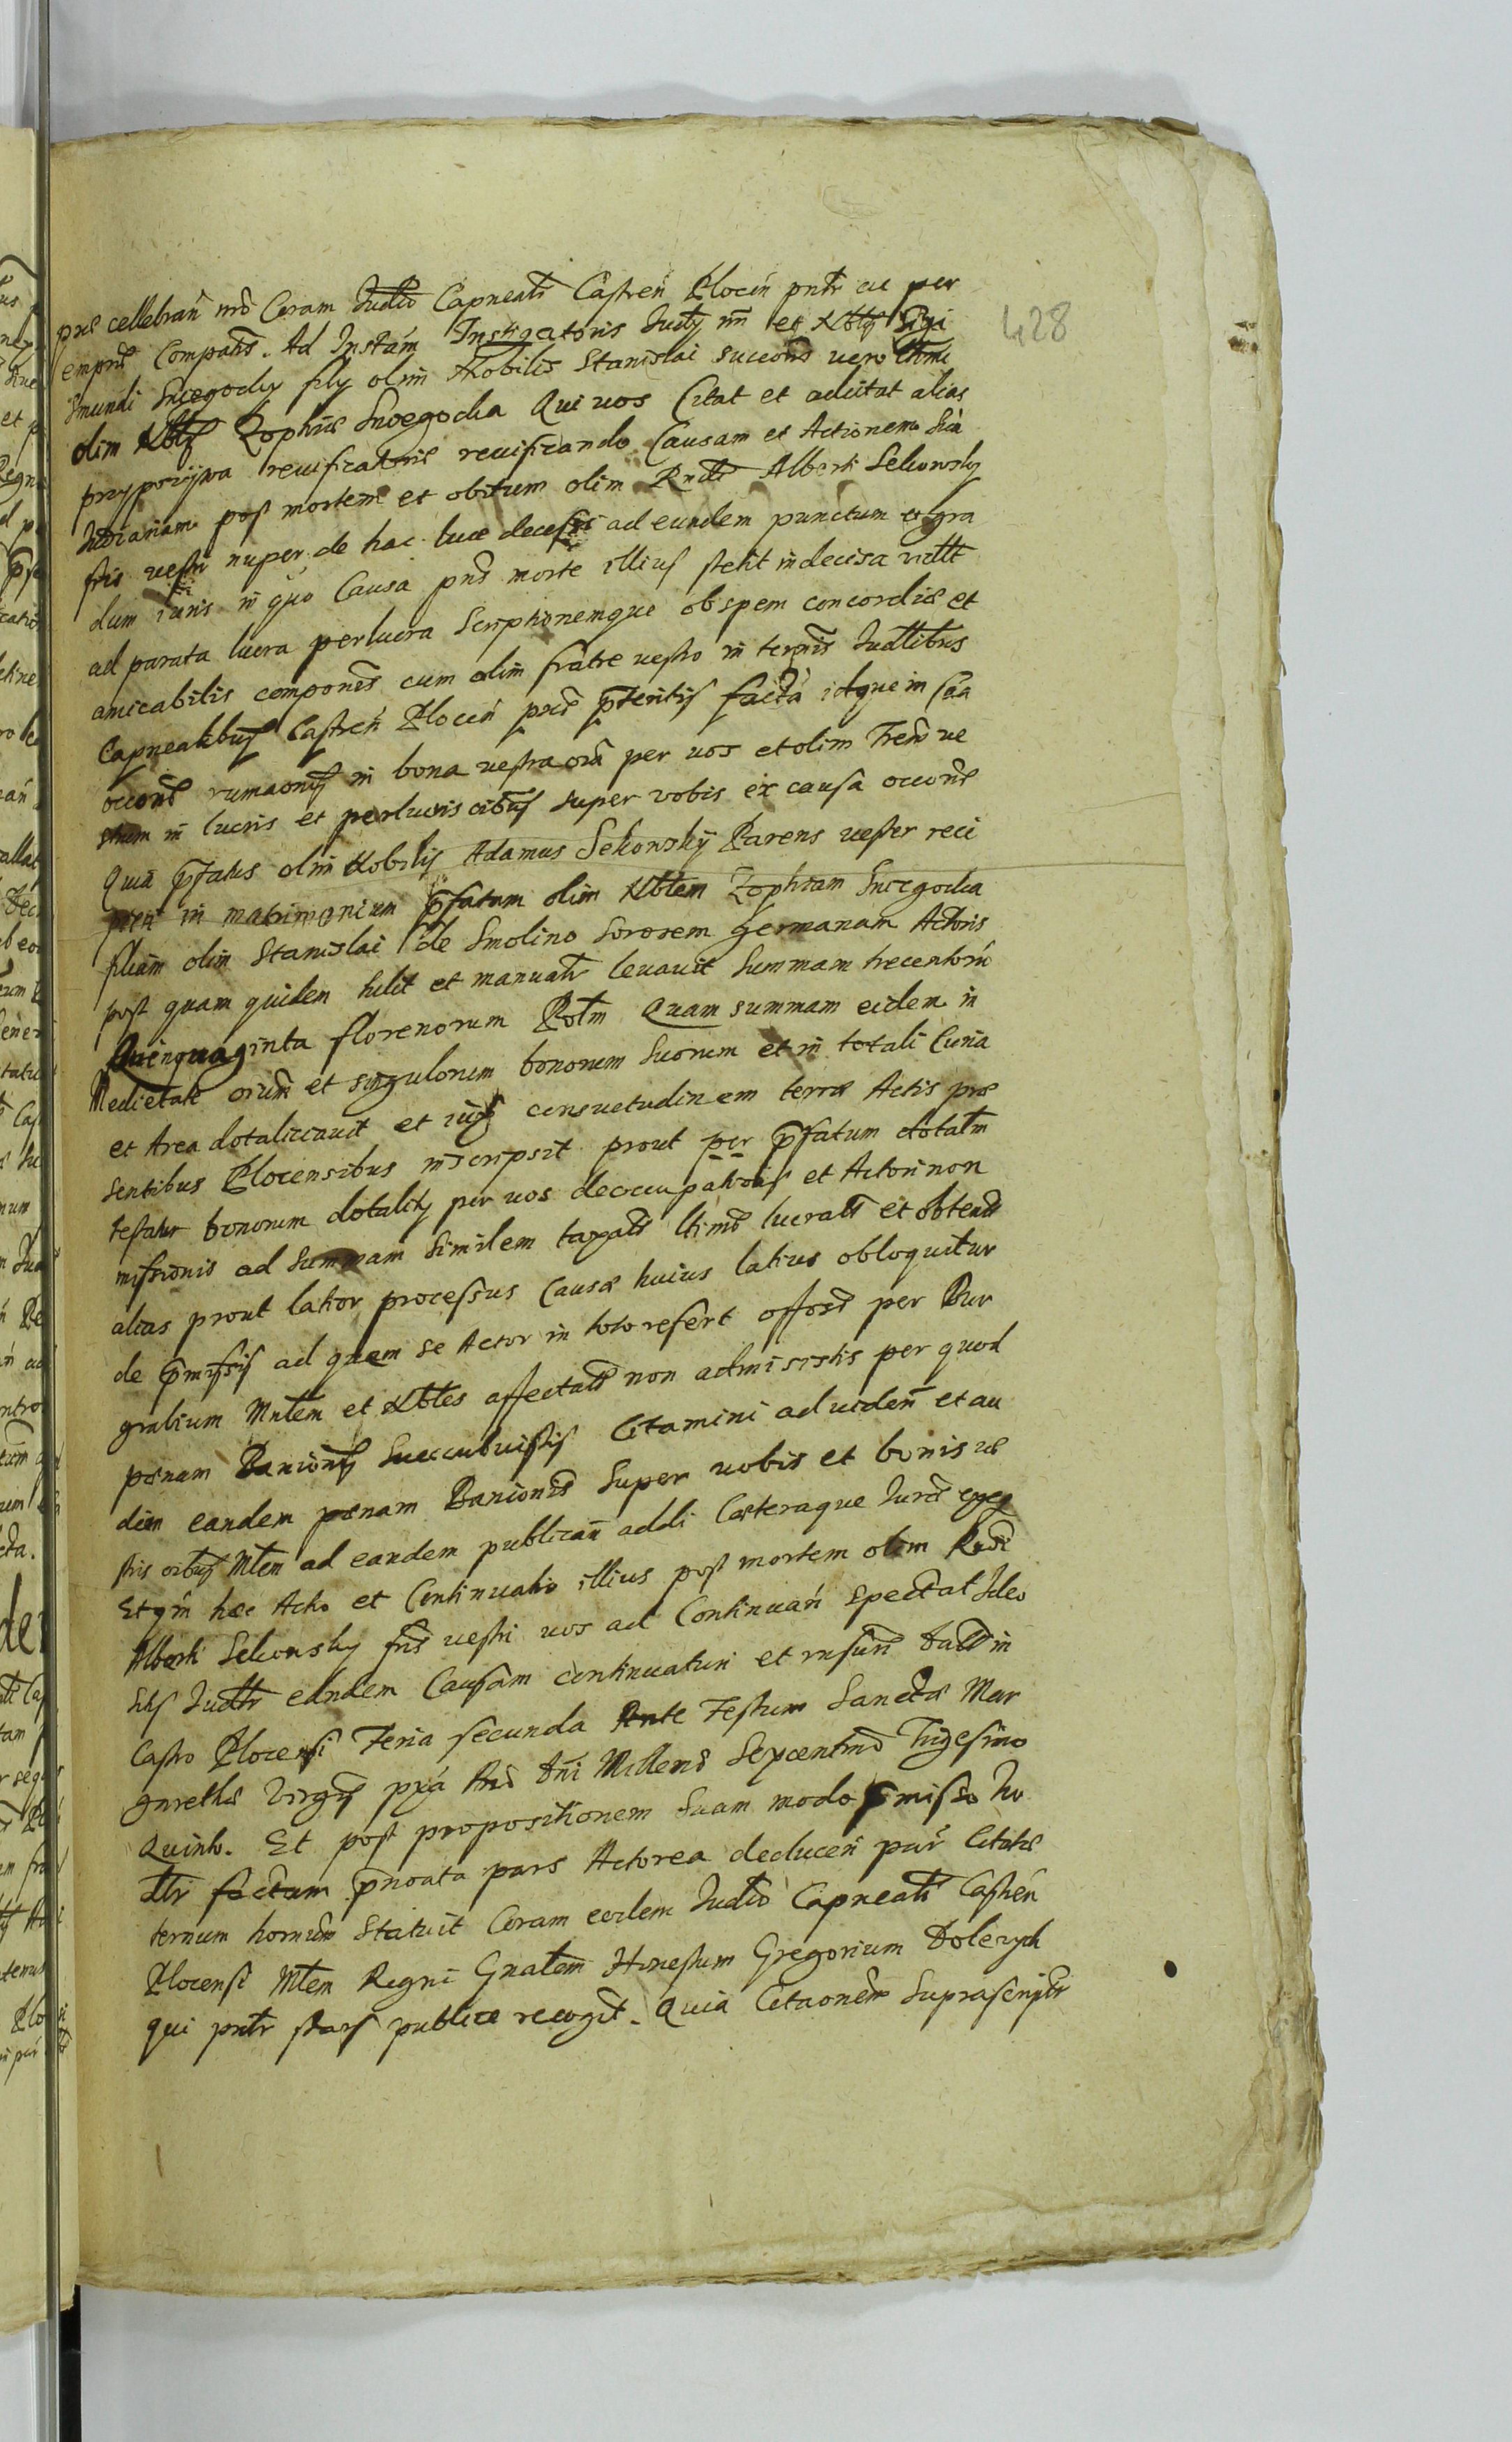 pns cellebran mo Coram Judio Capneali Castren Plocen pntr ac per
emprie Comparis. Ad Instam Instigatoris Judy nri et Nblis Sigi
smundi Sniegocky fily olim Nobilis Stanislai succoris vero Ltimi
olim Nblis Zophiæ Sniegocka Qui vos Citat et adcitat alias
przypozywa revificatoris revificando Causam et Actionem Suã
Judiariam post mortem et obitum olim Rndi Alberti Sekowsky
fris vestri nuper de hac luce decessi ad eundem punctum et gra
dum iuris in quo Causa pns morte illius stetit indecisa vidlt
ad parata lucra perlucra Scriptionemque ob spem concordiæ et
amicabilis componis cum olim fratre vestro in termis Judlibus
Capnealibus Castren Plocen pns pteritis facta idque in Cãa
occone rumaonis in bona vestra oia per vos et olim Frem ve
strum in lucris et perlucris oibus super vobis ex causa occone
Quia pfatus olim Nobilis Adamus Sekowsky Parens vester reci
piens in matrimonium pfatam olim Nblem Zophiam Sniegocka
filiam olim Stanislai de Smolino Sororem germanam Actoris
post quam quidem tulit et manualr levavit Summam trecentorũ
Quinquaginta florenorum Polm Quam summam eidem in
Medietate oium et singulorum bonorum Suorum et in totali Curia
et Area dotalitiavit et iuxs consuetudinem terræ Actis præ
sentibus Plocensibus inscripsit prout per pfatum dotalm
testatur bonorum dotality per vos deoccupationis et Actori non
missionis ad Summam Similem taxatis Ltime lucratis et obtentis
alias prout latior processus Causæ huius latius obloquitur
de pmissis ad quem se Actor in toto refert offose per Bur
grabium Mntem et Nbles affectatis non admisistis per quod
pœnam Banionis Succubuistis Citamini ad viden et au
dien eandem pœnam Banionis Super vobis et bonis ve
stris oibus Mtem ad eandem publican addi Cæteraque Juris exeq
Et qm hæc Actio et Continuatio illius post mortem olim Rndi
Alberti Sekowsky fris vestri vos ad Continuan spectat Ideo
Sitis Judlr eandem Causam continuaturi et rnsuri Datt in
Castro Plocensi Feria secunda Ante Festum Sanctæ Mar
garethæ Virgis pxa Ano Dni Millemo Sexcentmo Trigesimo
Quinto. Et post propositionem Suam modo pmisso Ju
dlr factam pnoata pars Actorea deducen par Citatæ
ternum hornum Statuit Coram eodem Judio Capneali Castren
Plocensi Mtem Regni Gnalem Honestum Gregorium Dolezych
qui pntr stans publice recogit. Quia Citaonem Suprascriptr
428